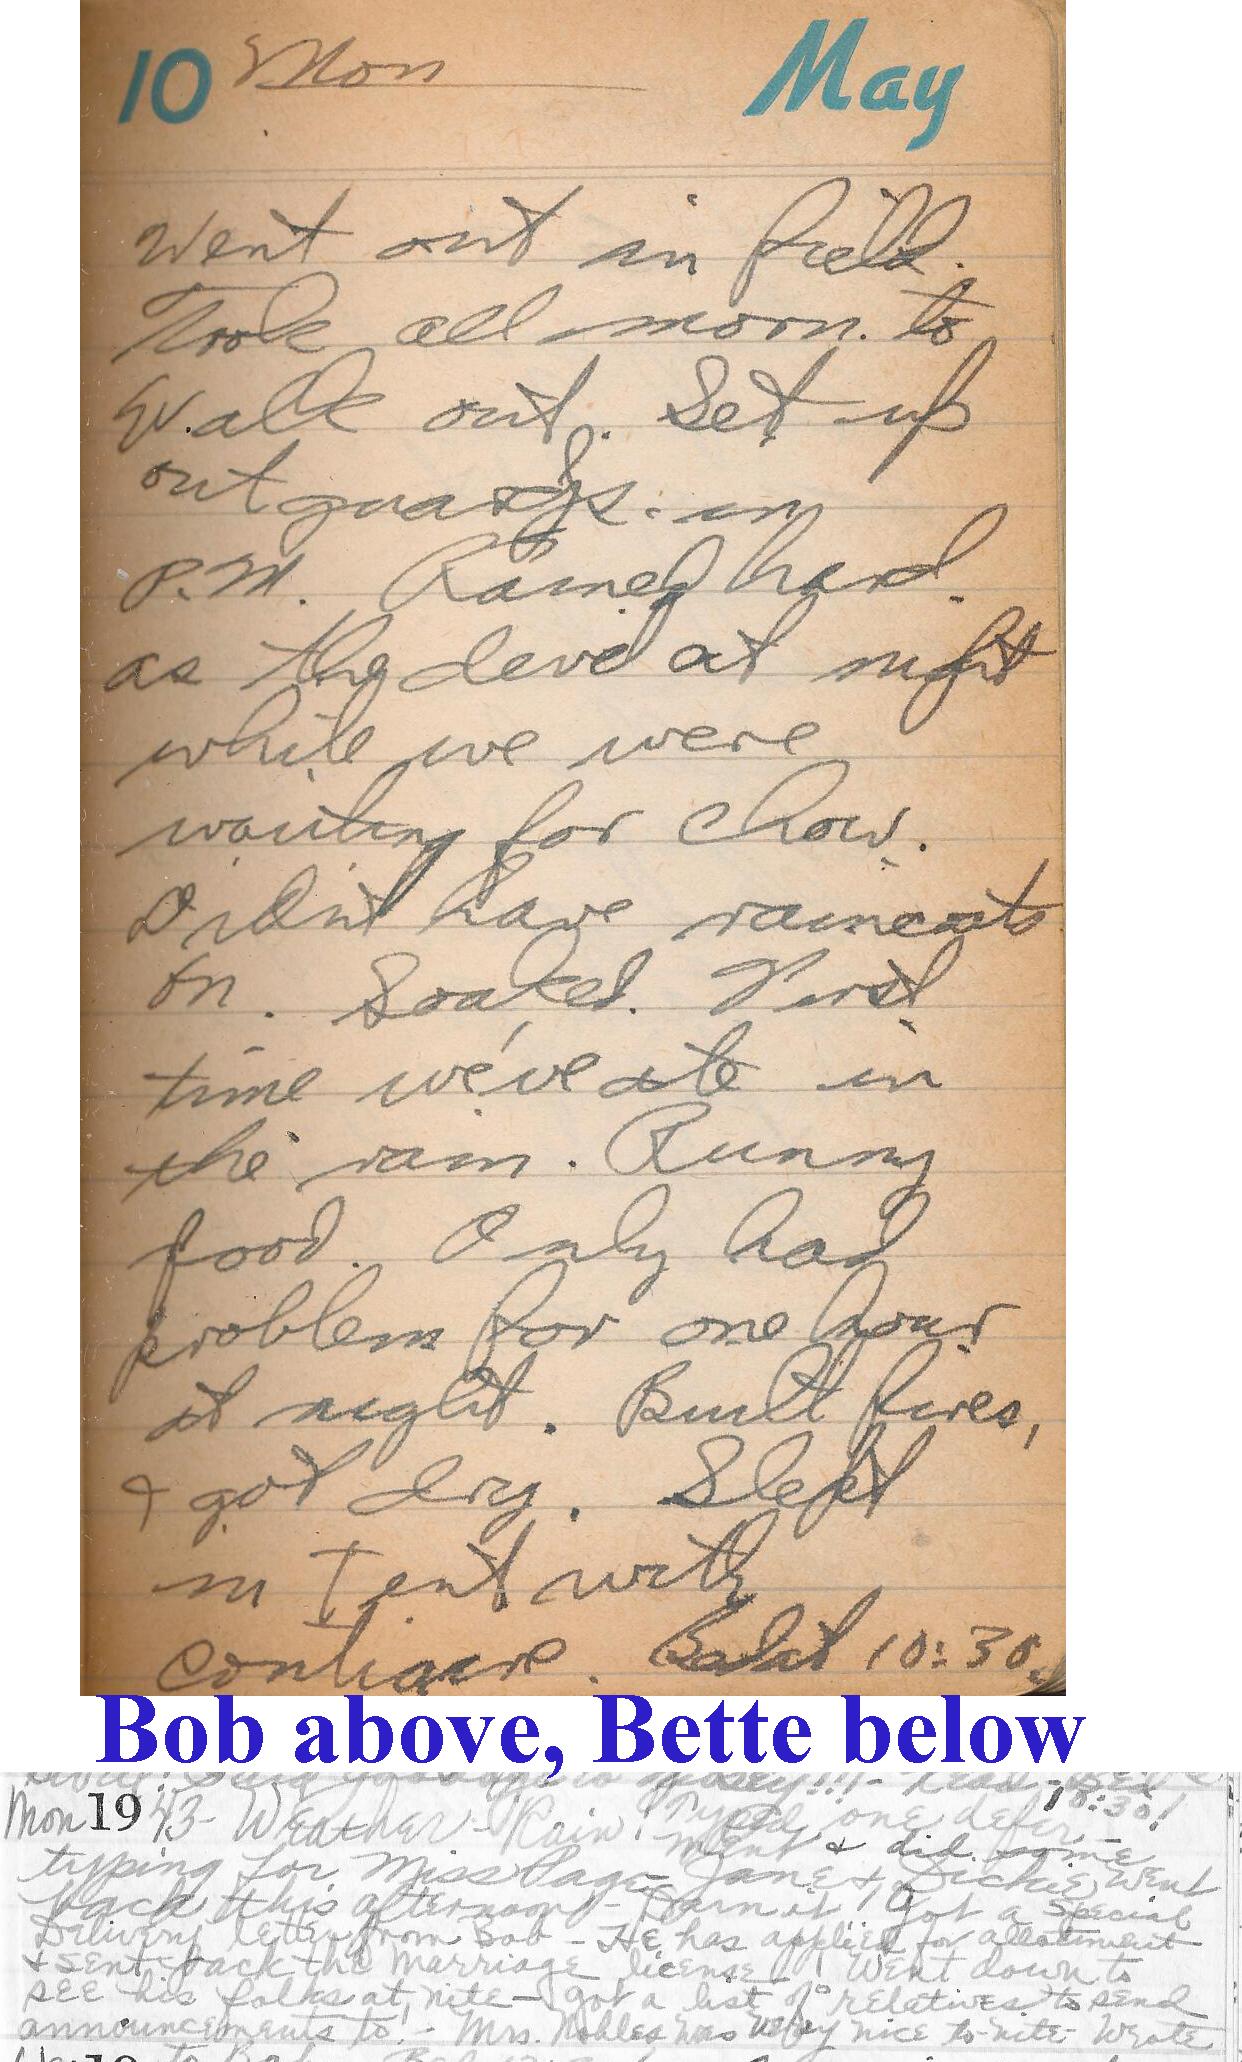 10 Mon May
Went out in field.
Took all morn. to
Walk out. Set up
outguards. in
P.M. Rained hard
as the devil at night
while we were
waiting for chow.
Didn't have raincoats
on. Soaked. First
time we've ate in
the rain. Runny
food. Only had
problem for one hour
at night. Built fires,
& got dry. Slept
in Tent with
Bed at 10:30.
Bob above, Bette below
Bed
Mon 1943- Weather - Rain! Typed one defer- 10:30!
ment & did some
typing for Miss Page - Jane & Dickie went
back this afternoon - Darn it! Got a Special
Delivery letter from Bob - He has applied for allotment
& sent back the marriage license! Went down to
see his folks at nite - got a list of relatives to send
announcements to. - Mrs. Nobles was very nice to-nite - Wrote
19 to Bob